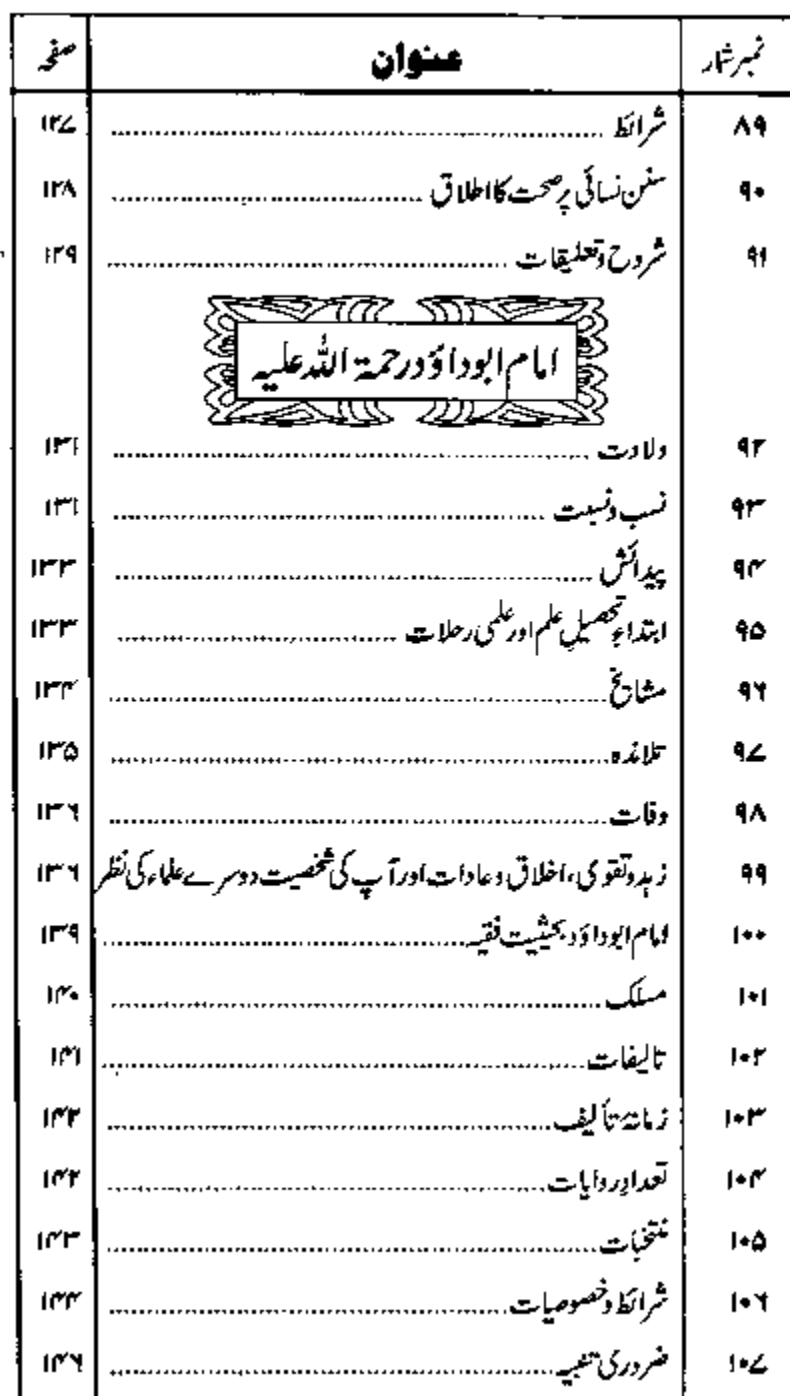 نمبر شمار عنوان صفحہ
۸۹ شرائط ۱۲۷
۹۰ سنن نسائی پر صحت کا اطلاق ۱۲۸
۹۱ شروح و تعلیقات ۱۲۹
امام ابوداؤد رحمۃ اللہ علیہ
۹۲ ولادت ۱۳۱
۹۳ نسب و نسبت ۱۳۱
۹۴ پیدائش ۱۳۳
۹۵ ابتداءِ تحصیلِ علم اور علمی رحلات ۱۳۳
۹۶ مشائخ ۱۳۴
۹۷ تلامذہ ۱۳۵
۹۸ وفات ۱۳۶
۹۹ زہد و تقوی، اخلاق و عادات اور آپ کی شخصیت دوسرے علماء کی نظر ۱۳۶
۱۰۰ امام ابوداؤد بحیثیت فقیہ ۱۳۹
۱۰۱ مسلک ۱۴۰
۱۰۲ تالیفات ۱۴۱
۱۰۳ زمانۂ تألیف ۱۴۲
۱۰۴ تعدادِ روایات ۱۴۲
۱۰۵ منتخبات ۱۴۳
۱۰۶ شرائط و خصوصیات ۱۴۴
۱۰۷ ضروری تنبیہ ۱۴۶